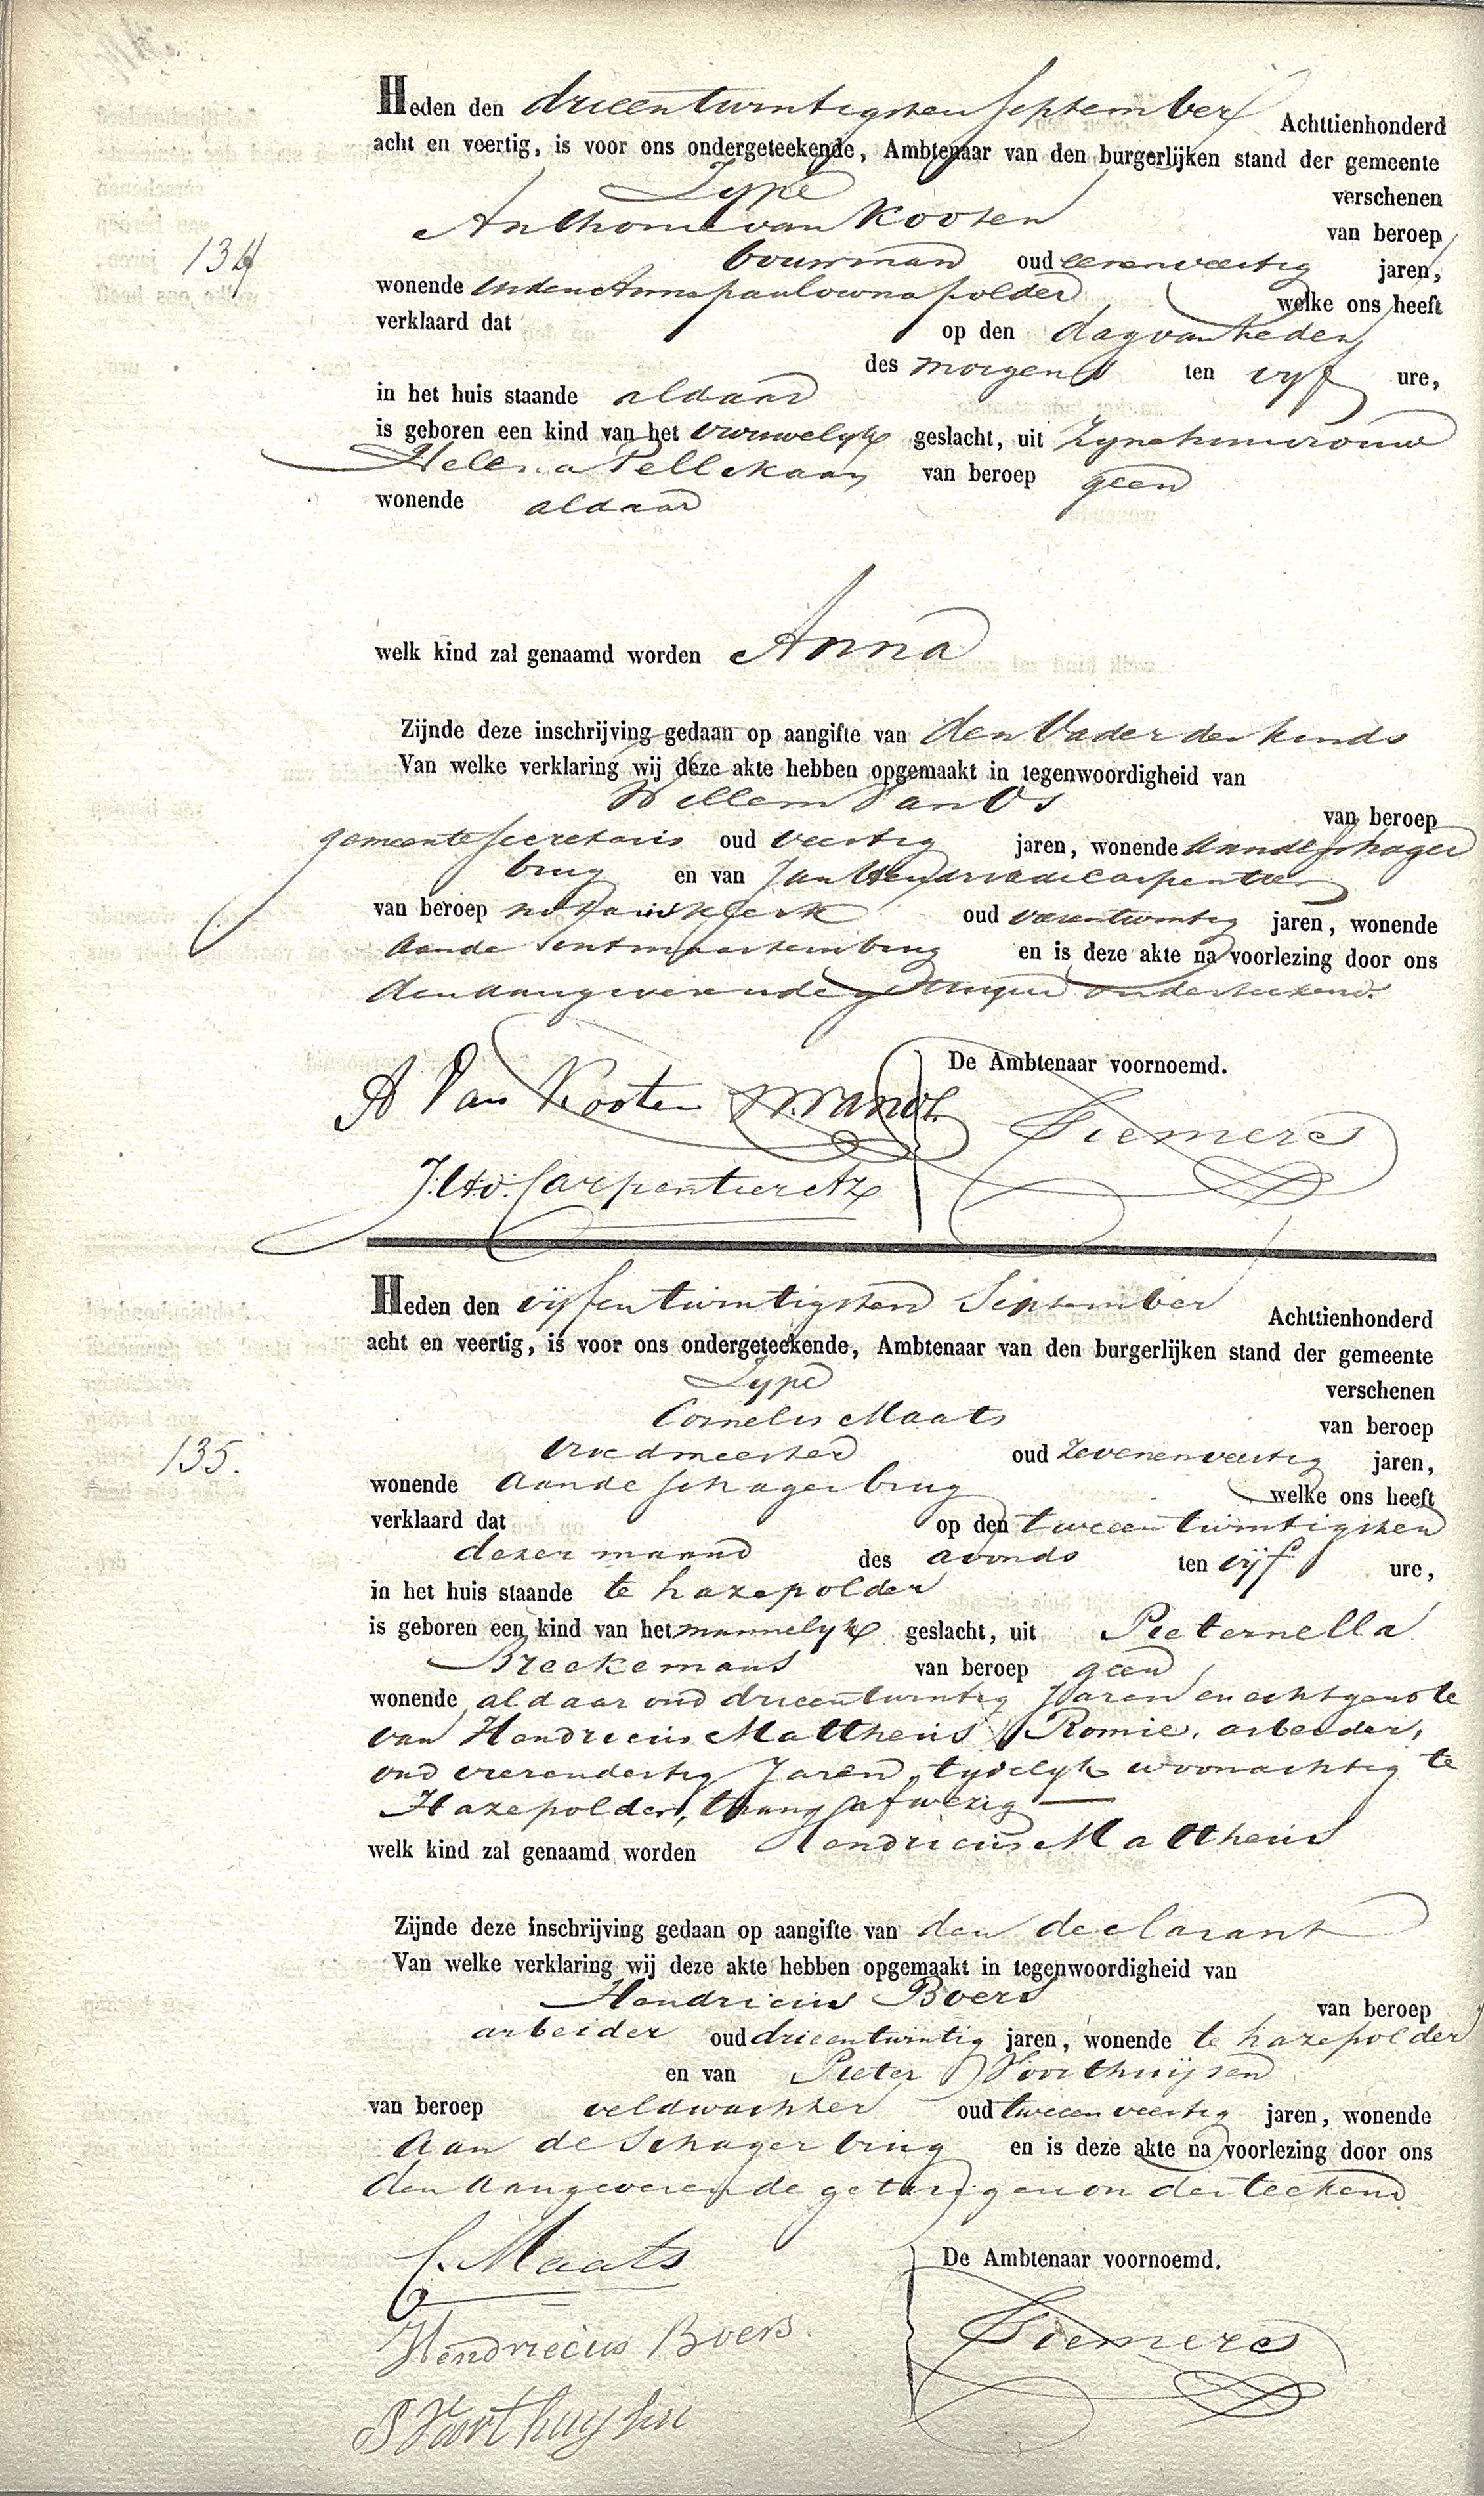 Heden den drieentwintigsten September Achttienhonderd
acht en veertig, is voor ons ondergeteekende, Ambtenaar van den burgerlijken stand der gemeente
Zype verschenen
Anthonie van Kooten van beroep
134 bouwman oud eenenveertig jaren,
wonende inden Annapaulownapolder welke ons heeft
verklaard dat op den dag van heden
des morgens ten vyf ure,
in het huis staande aldaar
is geboren een kind van het vrouwelyk geslacht, uit Zyne huisvrouw
Helena Pellekaan van beroep geen
wonende aldaar
welk kind zal genaamd worden Anna
Zijnde deze inschrijving gedaan op aangifte van den Vader des kinds
Van welke verklaring wij deze akte hebben opgemaakt in tegenwoordigheid van
Willem Van Os van beroep
gemeente secretaris oud veertig jaren, wonende aande Schager
brug en van Jan Hendrik de Carpentier
van beroep notarisklerk oud vierentwintig jaren, wonende
aande Sintmaartensbrug en is deze akte na voorlezing door ons
den aangever en de getuigen onderteekend.
De Ambtenaar voornoemd.
A Van Kooten W. van Os. Siemers
J: Carpentier Az
Heden den vijfentwintigsten September Achttienhonderd
acht en veertig, is voor ons ondergeteekende, Ambtenaar van den burgerlijken stand der gemeente
Zype verschenen
Cornelis Maats van beroep
135. vroedmeester oud zevenenveertig jaren,
wonende aande Schagerbrug welke ons heeft
verklaard dat op den tweeentwintigsten
dezer maand des avonds ten vijf ure,
in het huis staande te hazepolder
is geboren een kind van het mannelyk geslacht, uit Pieternella
Breekemans van beroep geen
wonende aldaar oud drieentwintig Jaren en echtgenote
van Hendricus Mattheus Romie, arbeider,
oud vierendertig Jaren, tydelyk woonachtig te
Hazepolder, thans afwezig —
welk kind zal genaamd worden Hendricus Mattheus
Zijnde deze inschrijving gedaan op aangifte van den declarant
Van welke verklaring wij deze akte hebben opgemaakt in tegenwoordigheid van
Hendricus Boers van beroep
arbeider oud drieentwintig jaren, wonende te hazepolder
en van Pieter Voorthuijsen
van beroep veldwachter oud tweeenveertig jaren, wonende
aan de Schagerbrug en is deze akte na voorlezing door ons
den aangever en de getuigen onderteekend.
C. Maats De Ambtenaar voornoemd.
Hendriecus Boers. Siemers
P Voorthuysen